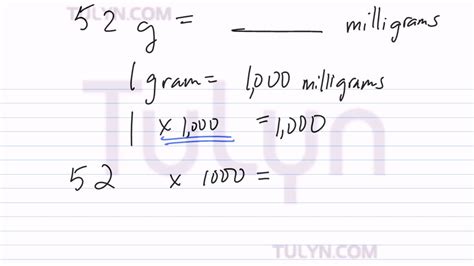 TULYN.COM
52 g = ______ milligrams
1 gram = 1,000 milligrams
1 x 1,000 = 1,000
TuLyn
52 x 1000 =
TULYN.COM